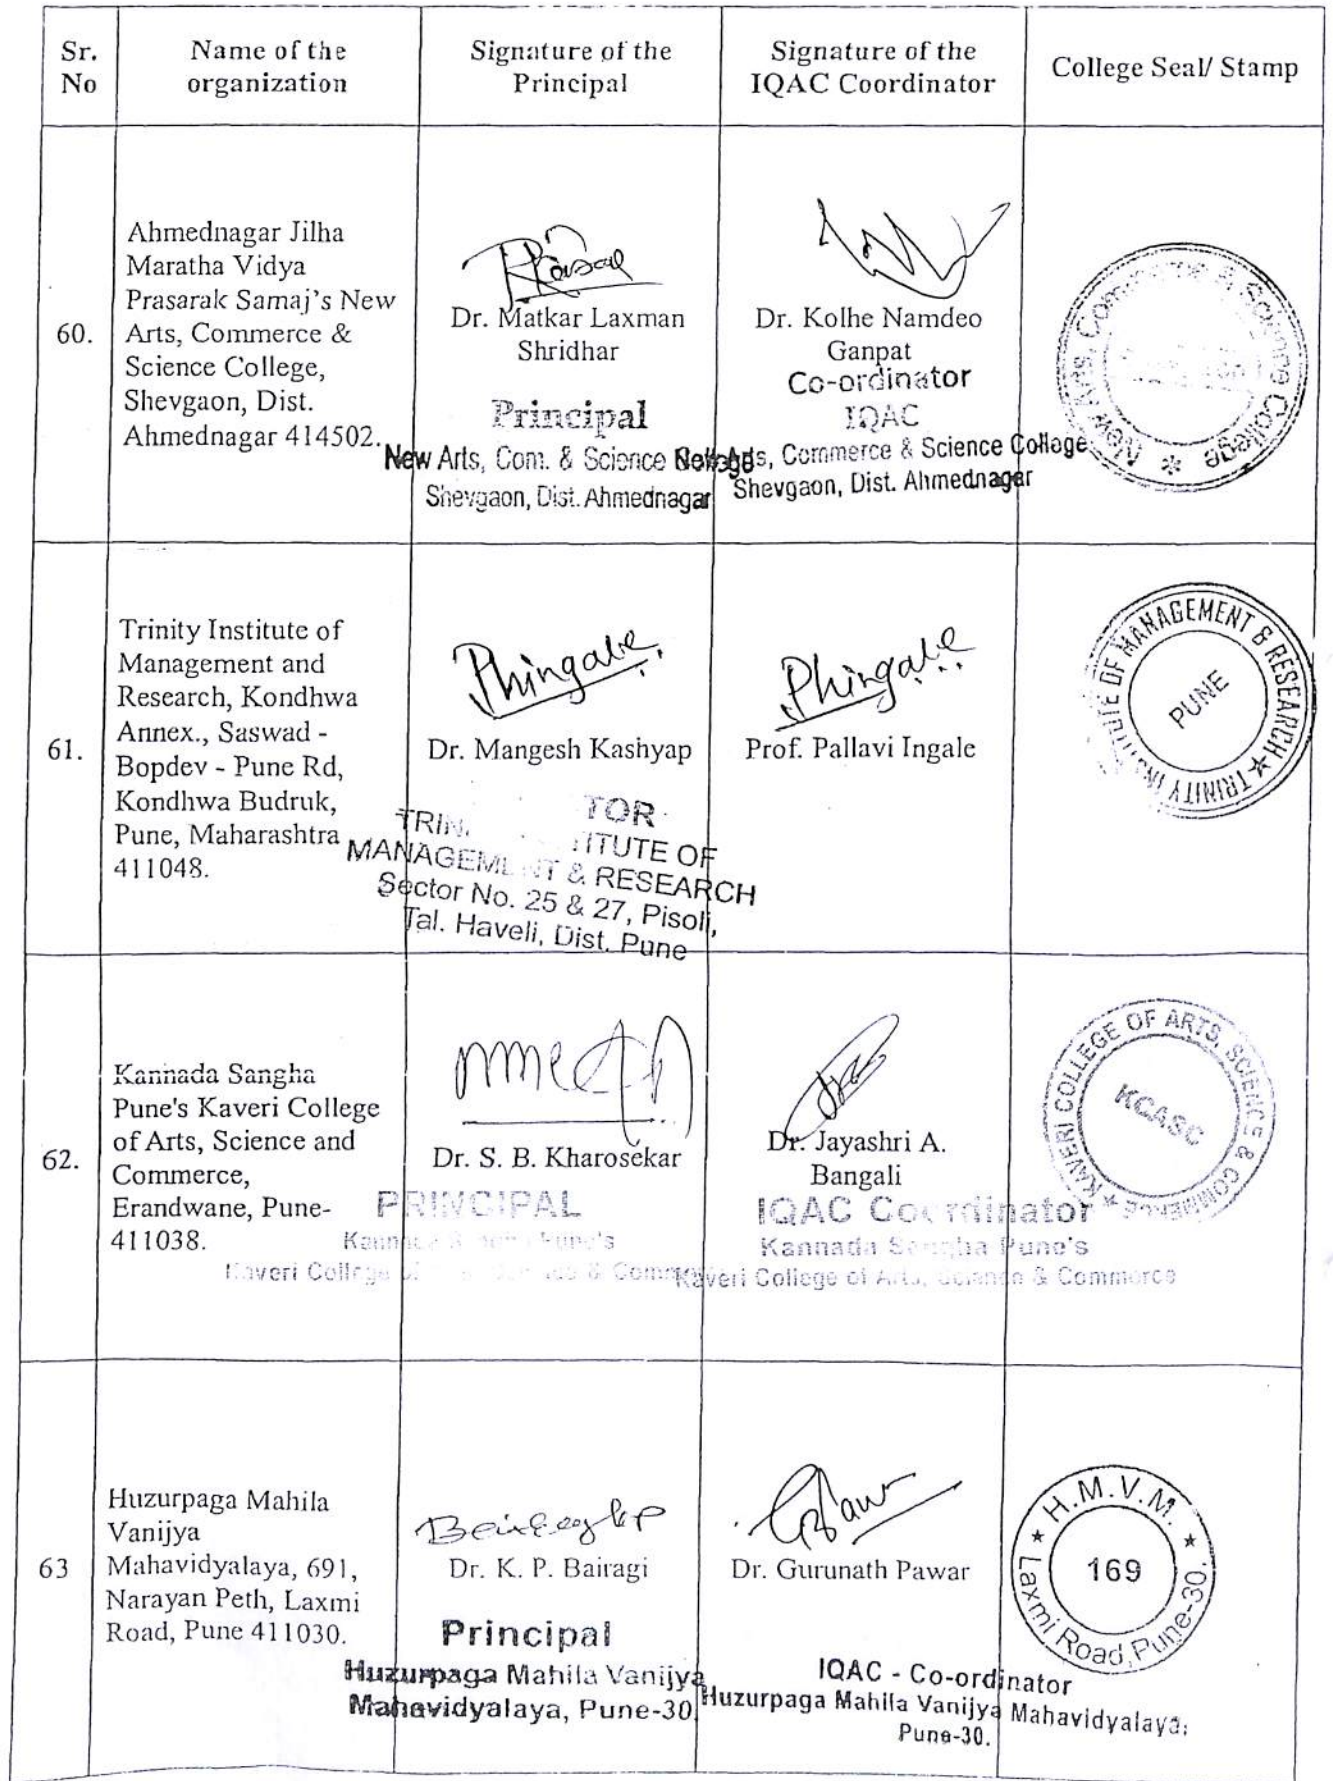 Sr.
No
Name of the
organization
Signature of the
Principal
Signature of the
IQAC Coordinator
College Seal/ Stamp
60.
Ahmednagar Jilha
Maratha Vidya
Prasarak Samaj's New
Arts, Commerce &
Science College,
Shevgaon, Dist.
Ahmednagar 414502.
Dr. Matkar Laxman
Shridhar
Principal
New Arts, Com. & Science
Shevgaon, Dist. Ahmednagar
Dr. Kolhe Namdeo
Ganpat
Co-ordinator
IQAC
Arts, Commerce & Science College
Shevgaon, Dist. Ahmednagar
New Arts, Commerce & Science College *
61.
Trinity Institute of
Management and
Research, Kondhwa
Annex., Saswad -
Bopdev - Pune Rd,
Kondhwa Budruk,
Pune, Maharashtra
411048.
Phingale
Dr. Mangesh Kashyap
TOR
TRIN ITUTE OF
MANAGEM T & RESEARCH
Sector No. 25 & 27, Pisoli,
Tal. Haveli, Dist. Pune
Phingale
Prof. Pallavi Ingale
TRINITY INSTITUTE OF MANAGEMENT & RESEARCH ★
PUNE
62.
Kannada Sangha
Pune's Kaveri College
of Arts, Science and
Commerce,
Erandwane, Pune-
411038.
Dr. S. B. Kharosekar
PRINCIPAL
Pune's
Kaveri College
Dr. Jayashri A.
Bangali
IQAC Coordinator
Kannada Sangha Pune's
Kaveri College of Arts, Science & Commerce
KAVERI COLLEGE OF ARTS, SCIENCE & COMMERCE *
KCASC
63
Huzurpaga Mahila
Vanijya
Mahavidyalaya, 691,
Narayan Peth, Laxmi
Road, Pune 411030.
Dr. K. P. Bairagi
Principal
Huzurpaga Mahila Vanijya
Mahavidyalaya, Pune-30.
Dr. Gurunath Pawar
IQAC - Co-ordinator
Huzurpaga Mahila Vanijya Mahavidyalaya,
Pune-30.
★ H.M.V.M. ★
169
Laxmi Road, Pune-30.